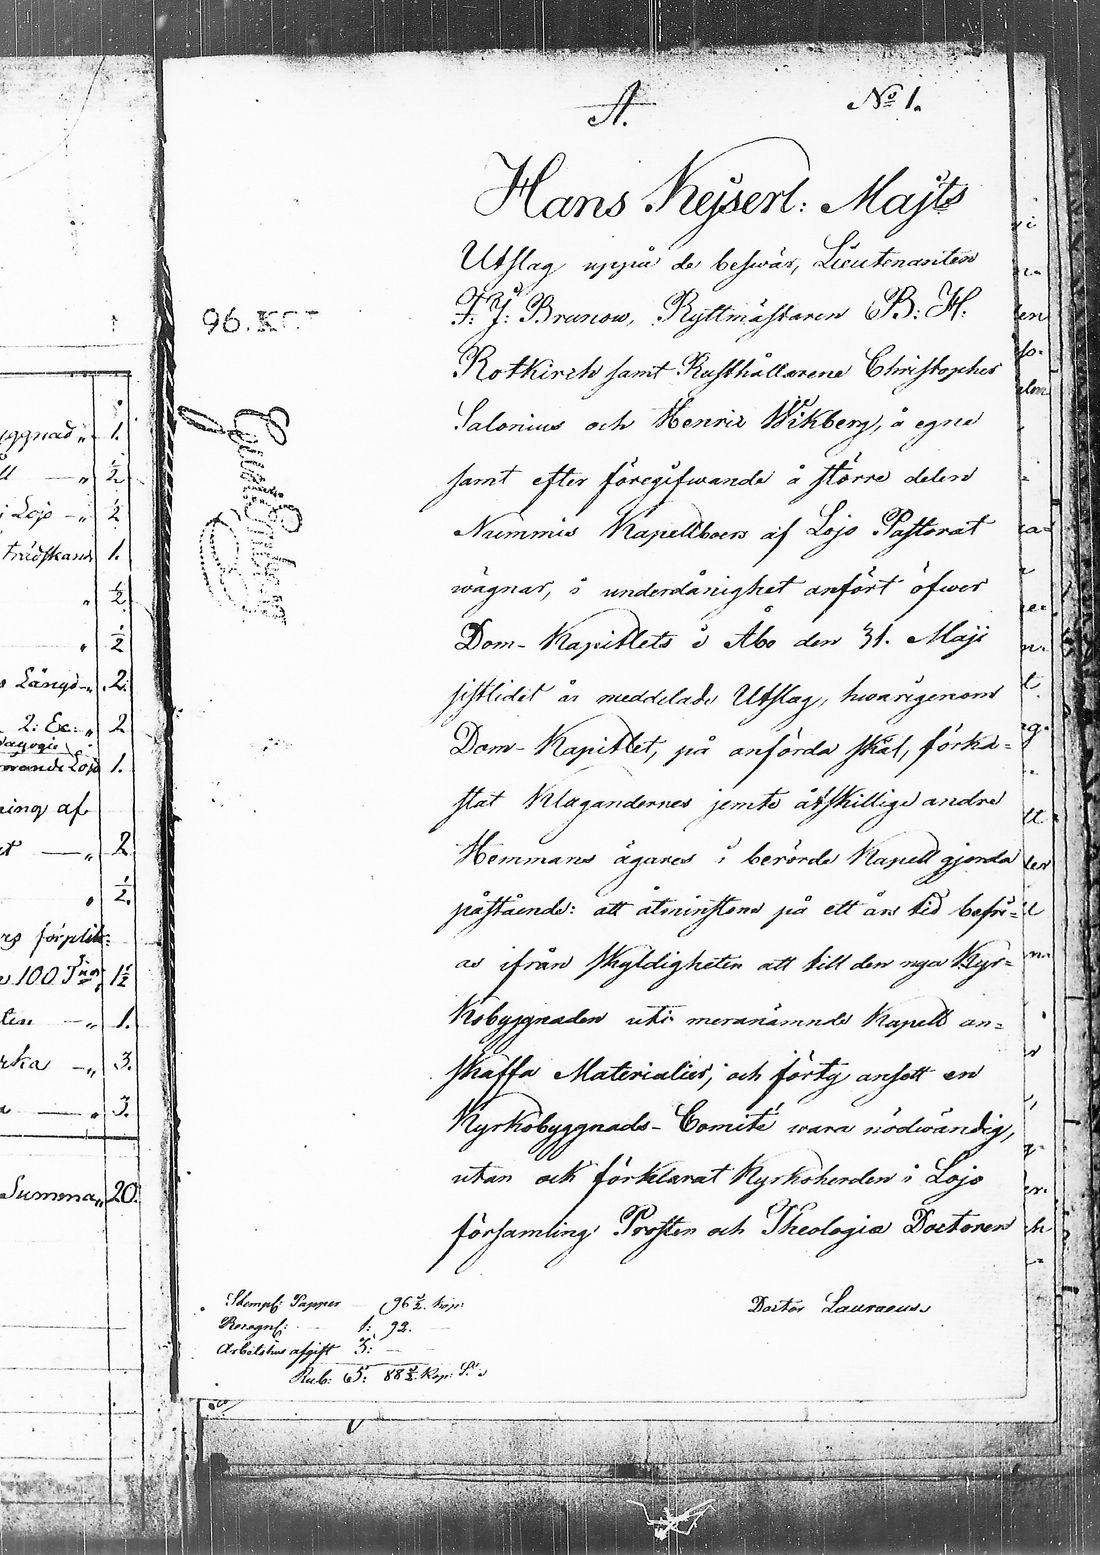 A.
No 1.
Hans Kejserl: Majts
Utslag uppå de beswär, Lieutenanten
F: J: Brunow, Ryttmästaren B: H:
Rotkirch samt Rusthållarene Christopher
Salonius och Henric Wikberg, å egne
samt efter föregifwande å större delen
Nummis Kapellboers af Lojo Pastorat
wägnar, i underdånighet anfört öfwer
Dom-Kapitlets i Åbo den 31. Maji
sistlidet år meddelade Utslag, hwarigenom
Dom-Kapitlet, på anförda skäl, förka=
stat Klagandernes jemte åtskillige andre
Hemmans ägares i berörde Kapell gjorda
påstående: att åtminstone på ett års tid befri=
as ifrån skyldigheten att till den nya Kyr=
kobyggnaden uti meranämnde Kapell an=
skaffa Materialier; och förty ansett en
Kyrkobyggnads-Comité wara nödwändig,
utan ock förklarat Kyrkoherden i Lojo
församling Prosten och Theologiæ Doctoren
Doctor Lauraeus
96. KOP
Stempl: Papper 96 1/2. Kop:
Recognf: 1: 92.
Arbetshus afgift 3: —
Rub: 5: 88 1/2. Kop: S.
yggnad „ 1.
ll — „ 1/2
i Lojo — „ 1/2
1.
„ 1/2
„ 1/2
s Längd „ 2.
2: Ex: „ 2
dagogie
warande Lojo 1.
ning af
t — „ 2
„ 1/2.
rs förplik=
e 100. 1 1/2
ten — „ 1.
rka — „ 3.
a — „ 3.
Summa „ 20.